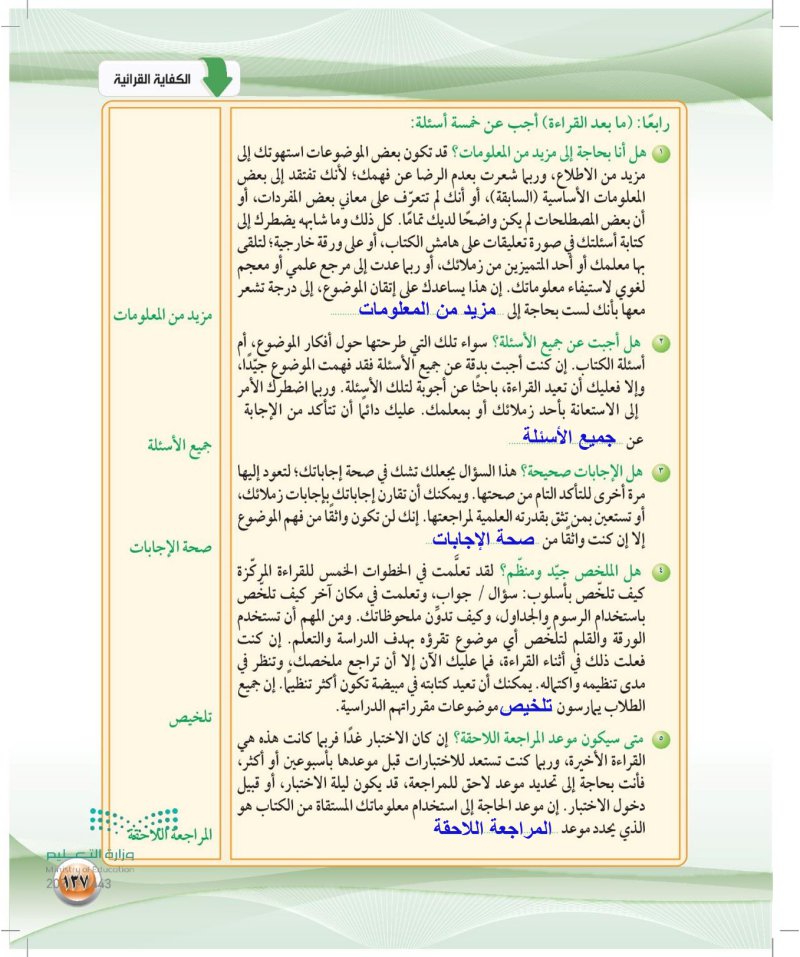 الكفاية القرائية
رابعًا: (ما بعد القراءة) أجب عن خمسة أسئلة:
١ هل أنا بحاجة إلى مزيد من المعلومات؟ قد تكون بعض الموضوعات استهوتك إلى
مزيد من الاطلاع، وربما شعرت بعدم الرضا عن فهمك؛ لأنك تفتقد إلى بعض
المعلومات الأساسية (السابقة)، أو أنك لم تتعرّف على معاني بعض المفردات، أو
أن بعض المصطلحات لم يكن واضحًا لديك تمامًا. كل ذلك وما شابهه يضطرك إلى
كتابة أسئلتك في صورة تعليقات على هامش الكتاب، أو على ورقة خارجية؛ لتلقى
بها معلمك أو أحد المتميزين من زملائك، أو ربما عدت إلى مرجع علمي أو معجم
لغوي لاستيفاء معلوماتك. إن هذا يساعدك على إتقان الموضوع، إلى درجة تشعر
معها بأنك لست بحاجة إلى مزيد من المعلومات
مزيد من المعلومات
٢ هل أجبت عن جميع الأسئلة؟ سواء تلك التي طرحتها حول أفكار الموضوع، أم
أسئلة الكتاب. إن كنت أجبت بدقة عن جميع الأسئلة فقد فهمت الموضوع جيّدًا،
وإلا فعليك أن تعيد القراءة، باحثًا عن أجوبة لتلك الأسئلة. وربما اضطرك الأمر
إلى الاستعانة بأحد زملائك أو بمعلمك. عليك دائمًا أن تتأكد من الإجابة
عن جميع الأسئلة
جميع الأسئلة
٣ هل الإجابات صحيحة؟ هذا السؤال يجعلك تشك في صحة إجاباتك؛ لتعود إليها
مرة أخرى للتأكد التام من صحتها. ويمكنك أن تقارن إجاباتك بإجابات زملائك،
أو تستعين بمن تثق بقدرته العلمية لمراجعتها. إنك لن تكون واثقًا من فهم الموضوع
إلا إن كنت واثقًا من صحة الإجابات
صحة الإجابات
٤ هل الملخص جيّد ومنظّم؟ لقد تعلَّمت في الخطوات الخمس للقراءة المركّزة
كيف تلخّص بأسلوب: سؤال / جواب، وتعلمت في مكان آخر كيف تلخّص
باستخدام الرسوم والجداول، وكيف تدوِّن ملحوظاتك. ومن المهم أن تستخدم
الورقة والقلم لتلخّص أي موضوع تقرؤه بهدف الدراسة والتعلم. إن كنت
فعلت ذلك في أثناء القراءة، فما عليك الآن إلا أن تراجع ملخصك، وتنظر في
مدى تنظيمه واكتماله. يمكنك أن تعيد كتابته في مبيضة تكون أكثر تنظيمًا. إن جميع
الطلاب يمارسون تلخيص موضوعات مقرراتهم الدراسية.
تلخيص
٥ متى سيكون موعد المراجعة اللاحقة؟ إن كان الاختبار غدًا فربما كانت هذه هي
القراءة الأخيرة، وربما كنت تستعد للاختبارات قبل موعدها بأسبوعين أو أكثر،
فأنت بحاجة إلى تحديد موعد لاحق للمراجعة، قد يكون ليلة الاختبار، أو قبيل
دخول الاختبار. إن موعد الحاجة إلى استخدام معلوماتك المستقاة من الكتاب هو
الذي يحدد موعد المراجعة اللاحقة
المراجعة اللاحقة
وزارة التعليم
Ministry of Education
١٣٧